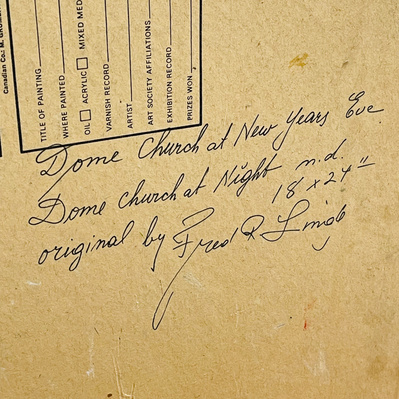 Canadian Co.: M. GRUM
TITLE OF PAINTING
WHERE PAINTED
OIL ACRYLIC MIXED MED
VARNISH RECORD
ARTIST
ART SOCIETY AFFILIATIONS
EXHIBITION RECORD
PRIZES WON
Dome Church at New Years Eve
Dome Church at Night n.d.
18 x 24"
original by Fred R